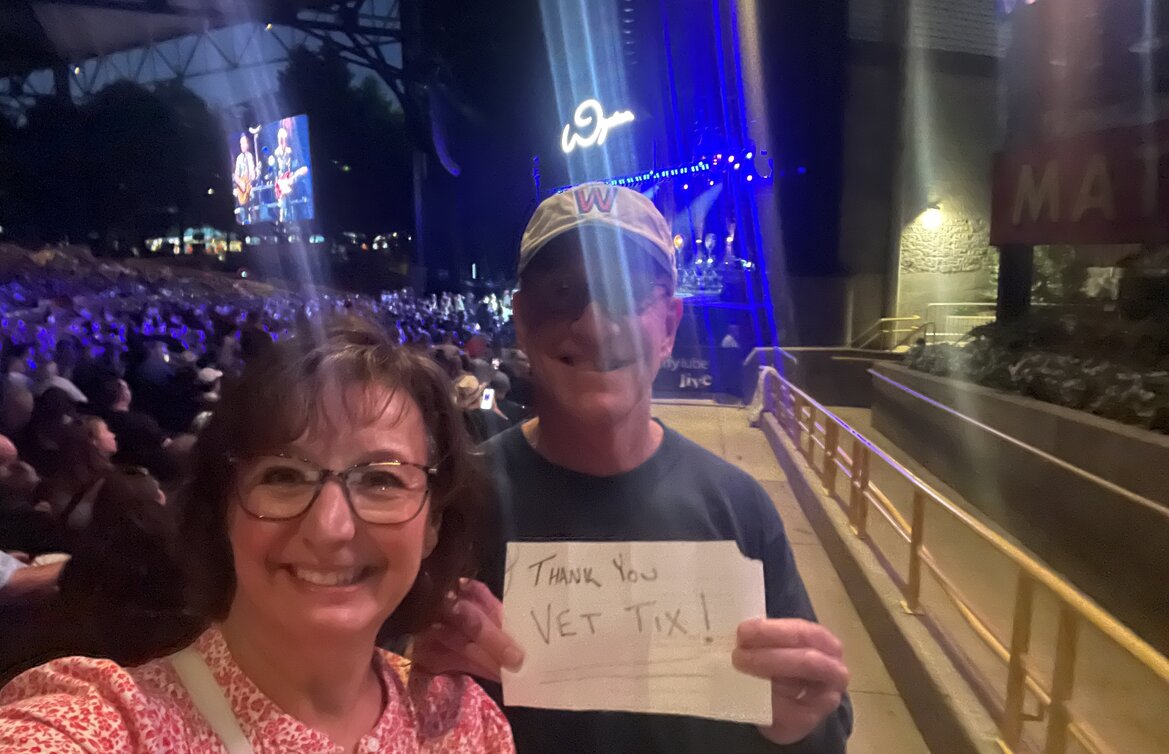 W
MA
live
THANK YOU
VET TIX!